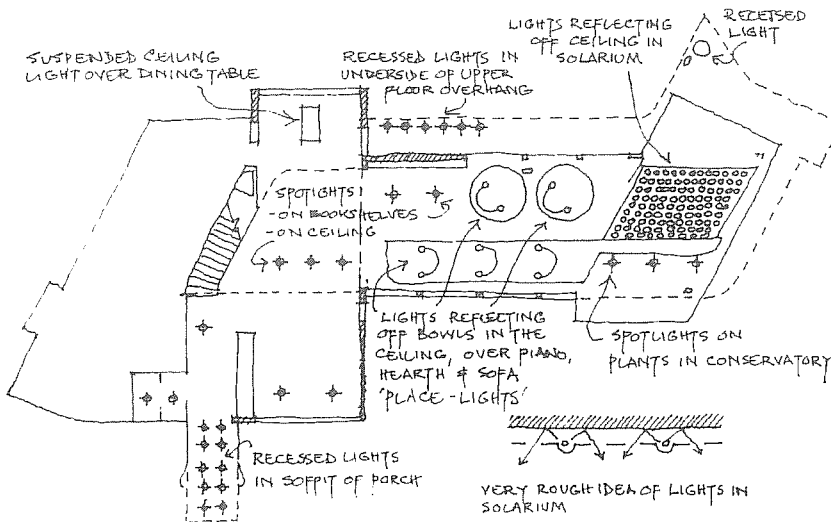 SUSPENDED CEILING
LIGHT OVER DINING TABLE
RECESSED LIGHTS IN
UNDERSIDE OF UPPER
FLOOR OVERHANG
LIGHTS REFLECTING
OFF CEILING IN
SOLARIUM
RECETSED
LIGHT
SPOTLIGHTS
-ON BOOKSHELVES
-ON CEILING
LIGHTS REFLECTING
OFF BOWLS IN THE
CEILING, OVER PIANO,
HEARTH & SOFA
'PLACE-LIGHTS'
SPOTLIGHTS ON
PLANTS IN CONSERVATORY
RECESSED LIGHTS
IN SOFFIT OF PORCH
VERY ROUGH IDEA OF LIGHTS IN
SOLARIUM